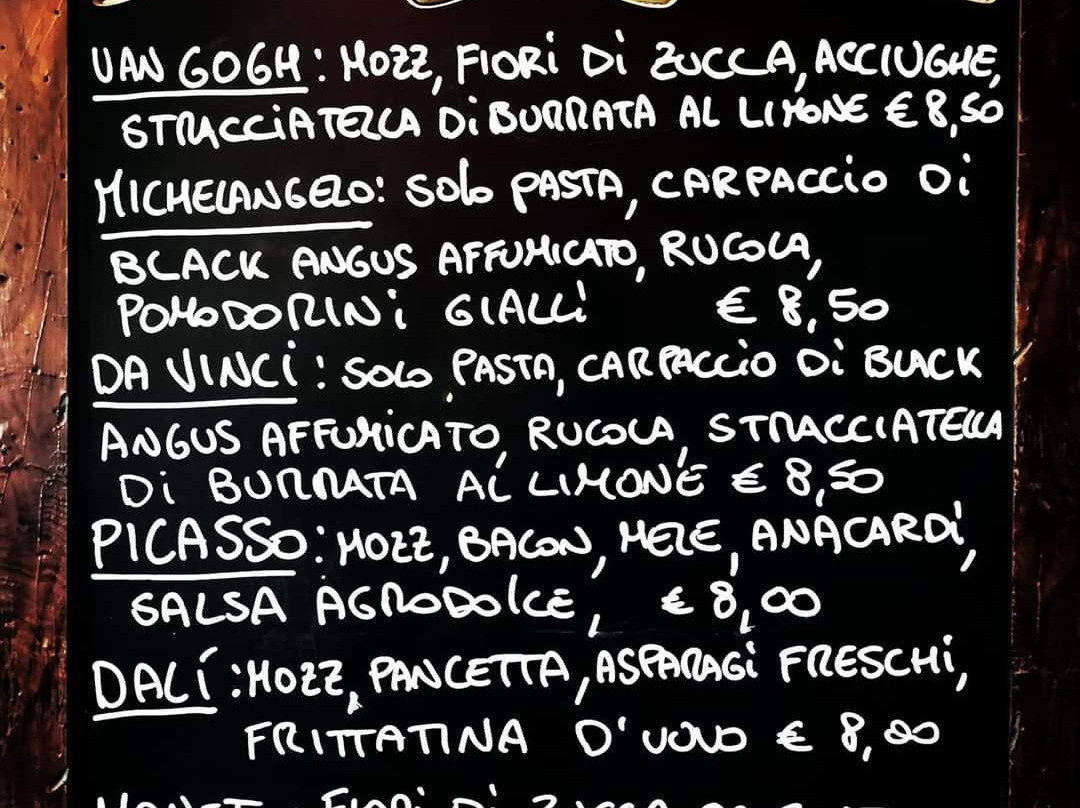 VAN GOGH: MOZZ, FIORI DI ZUCCA, ACCIUGHE,
STRACCIATELLA DI BURRATA AL LIMONE € 8,50
MICHELANGELO: SOLO PASTA, CARPACCIO DI
BLACK ANGUS AFFUMICATO, RUCOLA,
POMODORINI GIALLI € 8,50
DA VINCI: SOLO PASTA, CARPACCIO DI BLACK
ANGUS AFFUMICATO, RUCOLA, STRACCIATELLA
DI BURRATA AL LIMONE € 8,50
PICASSO: MOZZ, BACON, MELE, ANACARDI,
SALSA AGRODOLCE, € 8,00
DALÍ: MOZZ, PANCETTA, ASPARAGI FRESCHI,
FRITTATINA D'UOVO € 8,00
MONET: FIORI DI ZUCCA